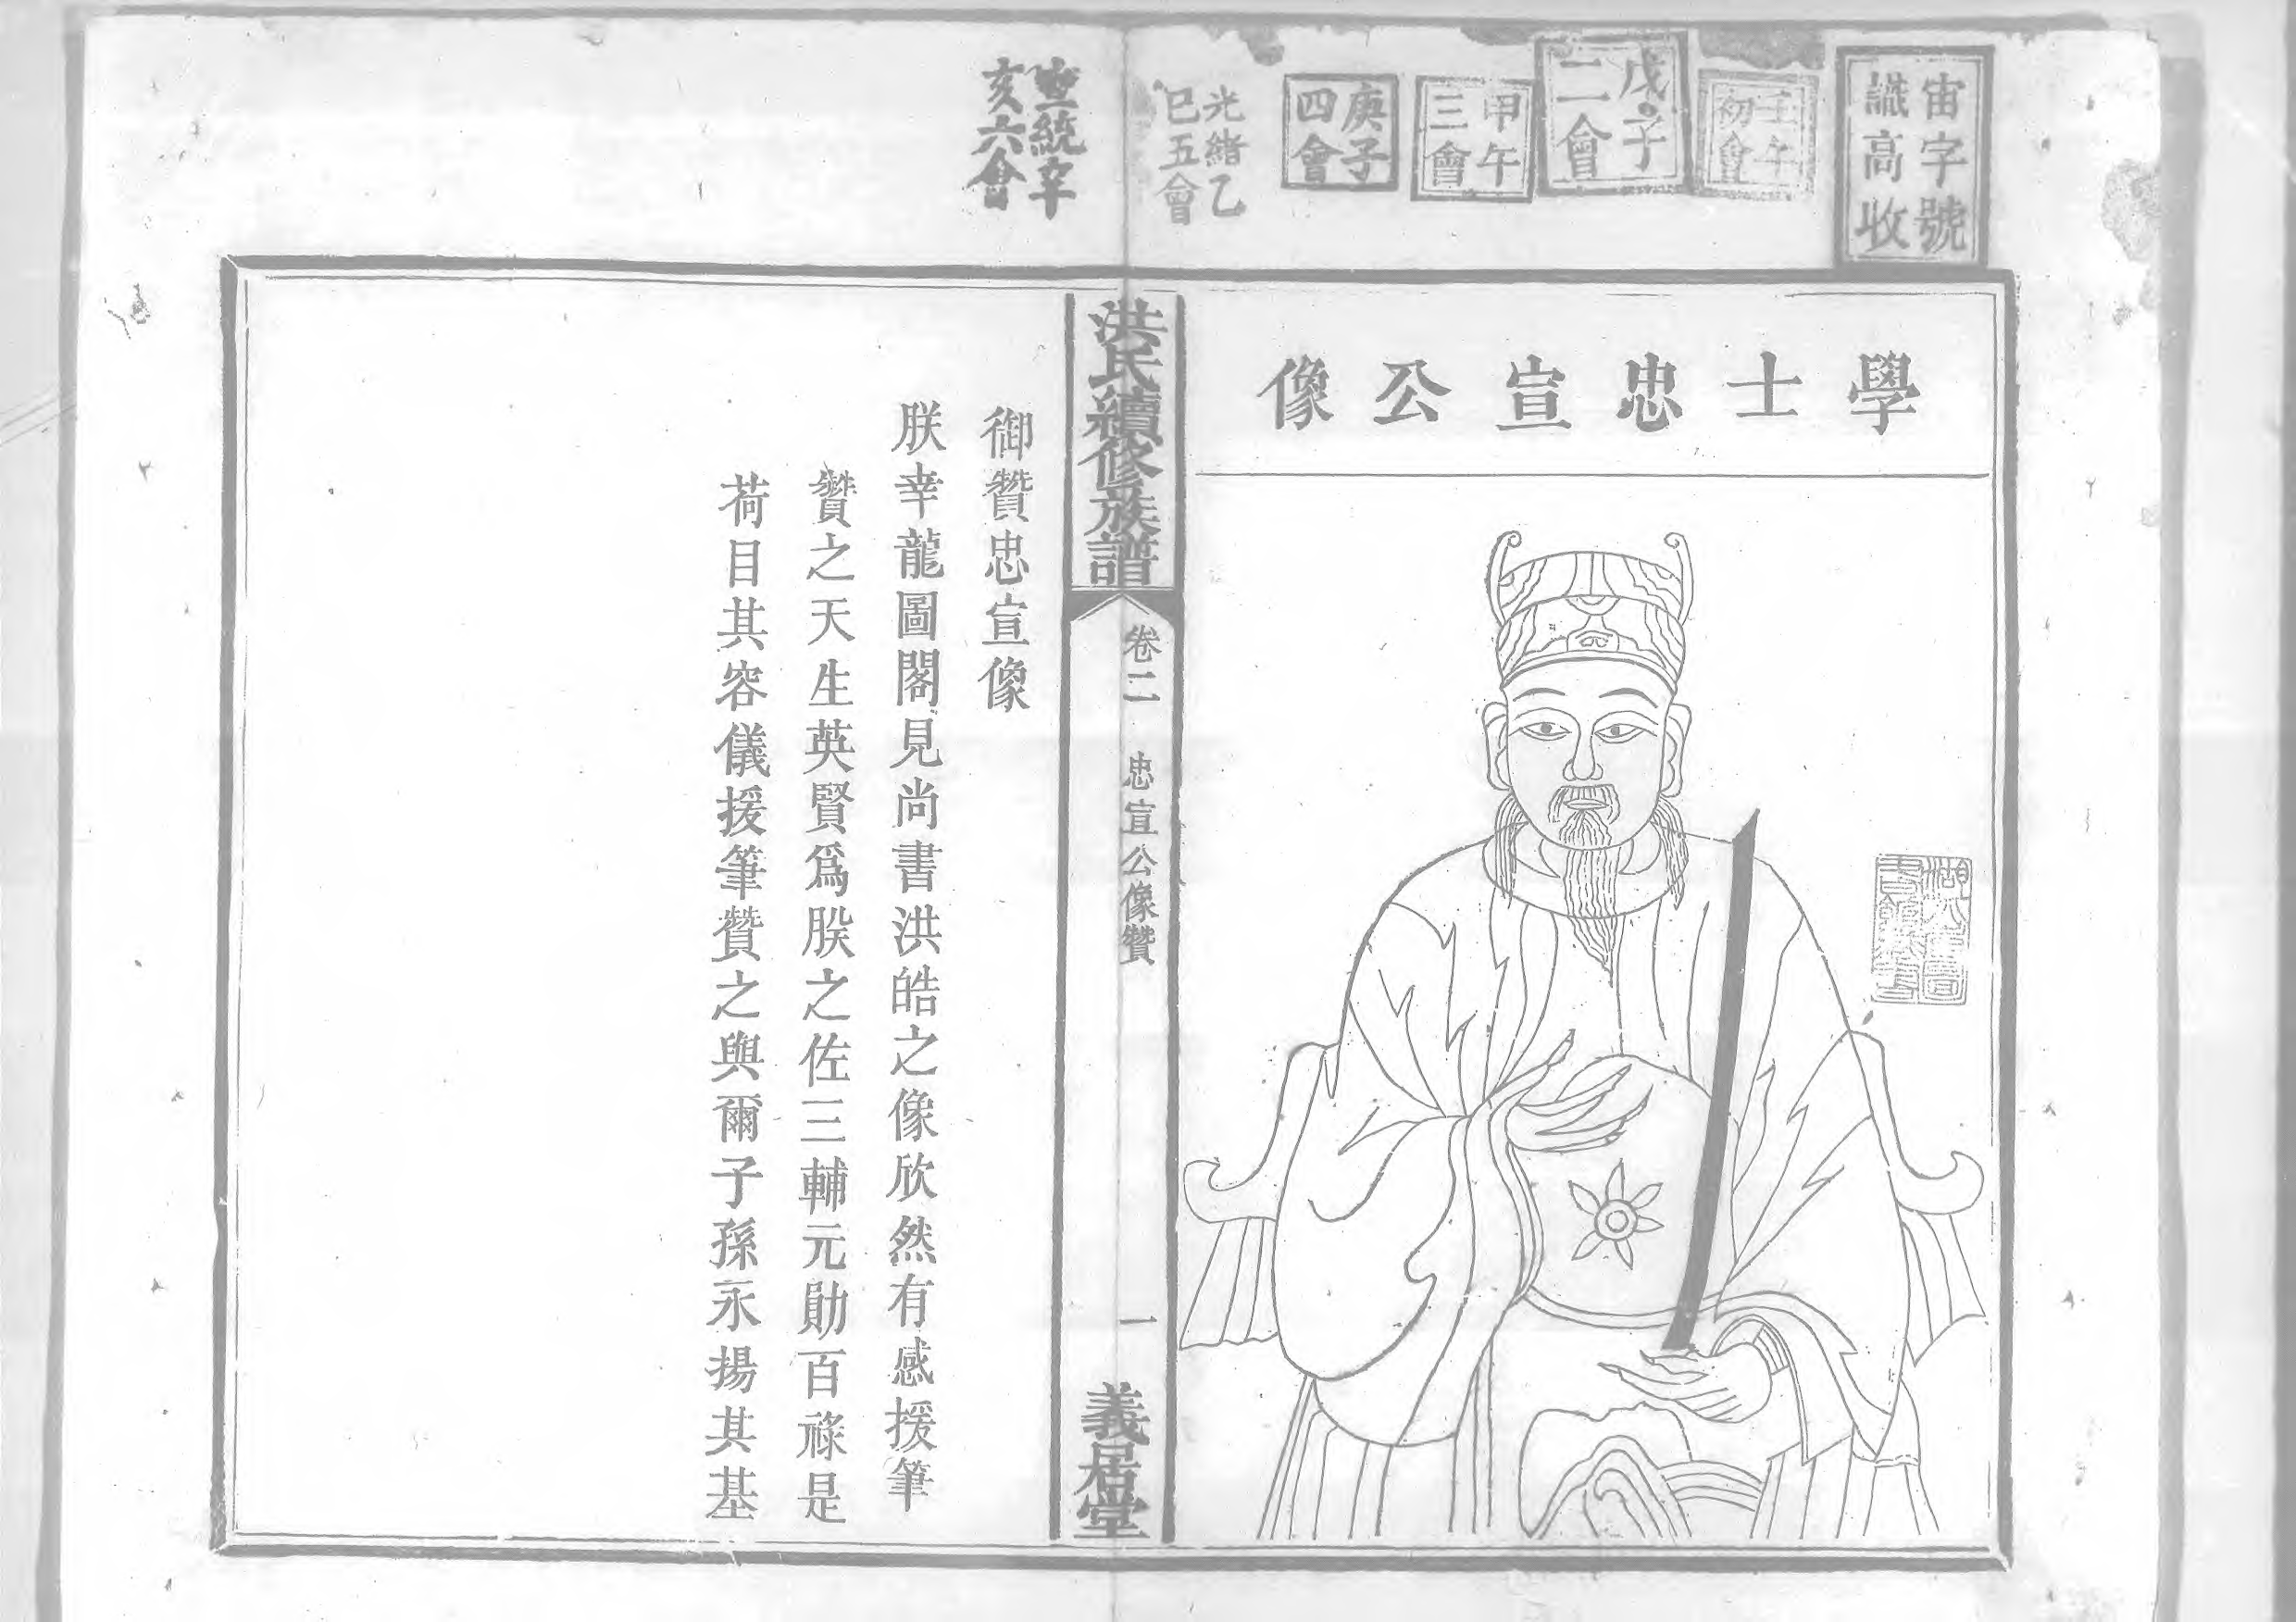 宙字號
識高收
壬午
初會
戊子
二會
甲午
三會
庚子
四會
光緒乙
巳五會
宣統辛
亥六會
學士忠宣公像
洪氏續修族譜
卷二
忠宣公像贊
一
義居堂
御贊忠宣像
朕幸龍圖閣見尚書洪皓之像欣然有感援筆
贊之天生英賢爲朕之佐三輔元勛百祿是
荷目其容儀援筆贊之與爾子孫永揚其基